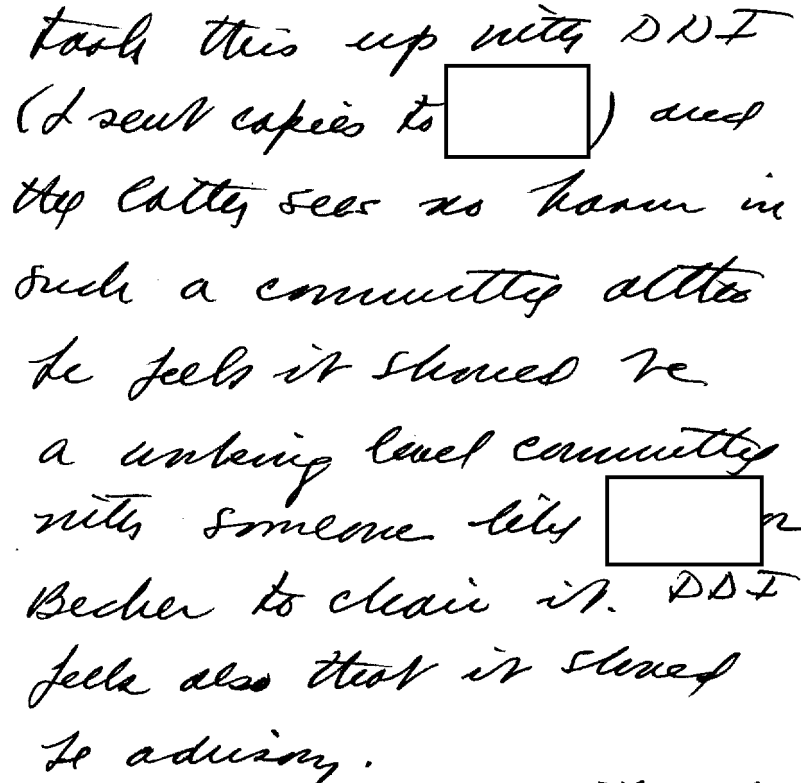 took this up with DDI
(I sent copies to ) and
the latter sees no harm in
such a committee altho
he feels it should be
a working level committee
with someone like or
Becker to chair it. DDI
feels also that it should
be advisory.